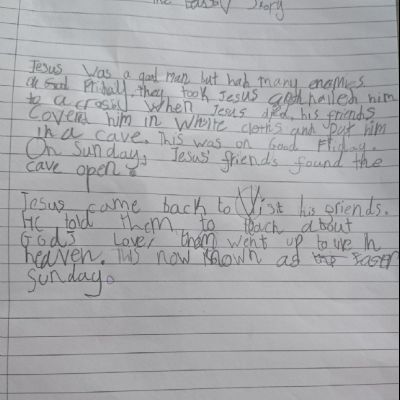 the Easter Story
Jesus was a good man but hah many enemies
on God Friball they took Jesus and nailed him
to a cross. When Jesus died, his friends
coverd him in white cloths and put him
in a cave. This was on Good Friday.
On Sunday, Jesus' friends found the
cave open.
Jesus came back to Visit his friends.
He told them to teach about
God's Love, then went up to live in
heaven. This now known as the Easter
Sunday.